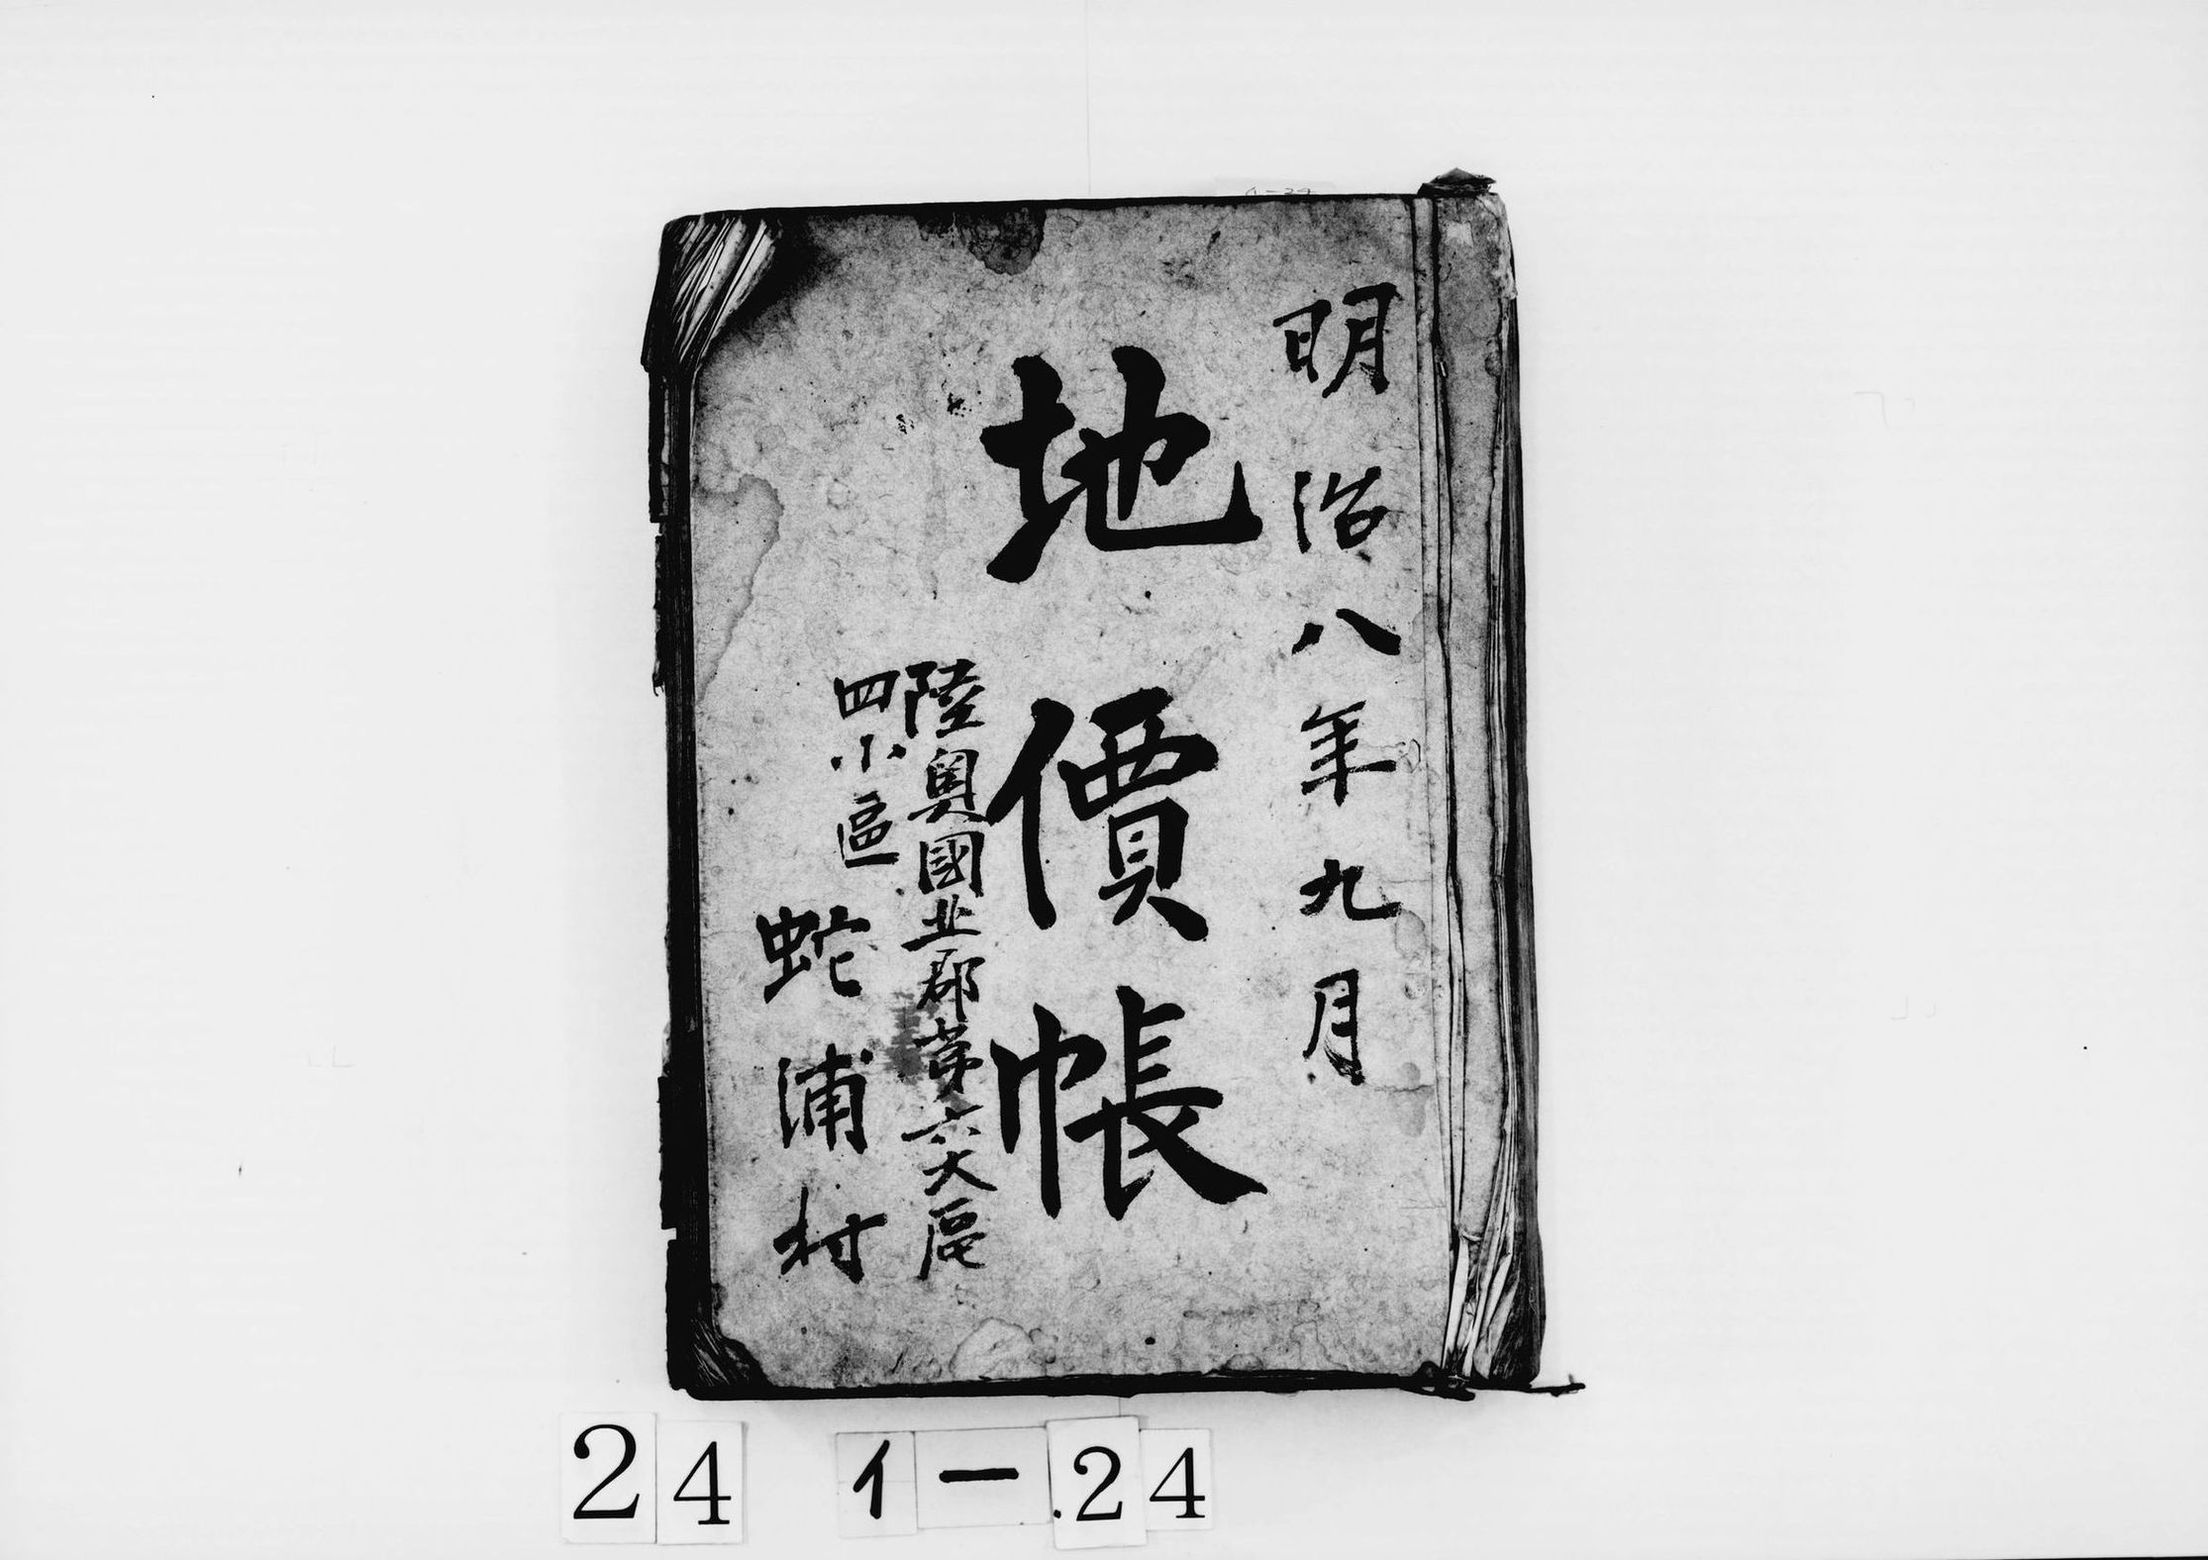 明治八年九月
地價帳
陸奥國北郡第六大區
四小區
蛇浦村
24 イ-24